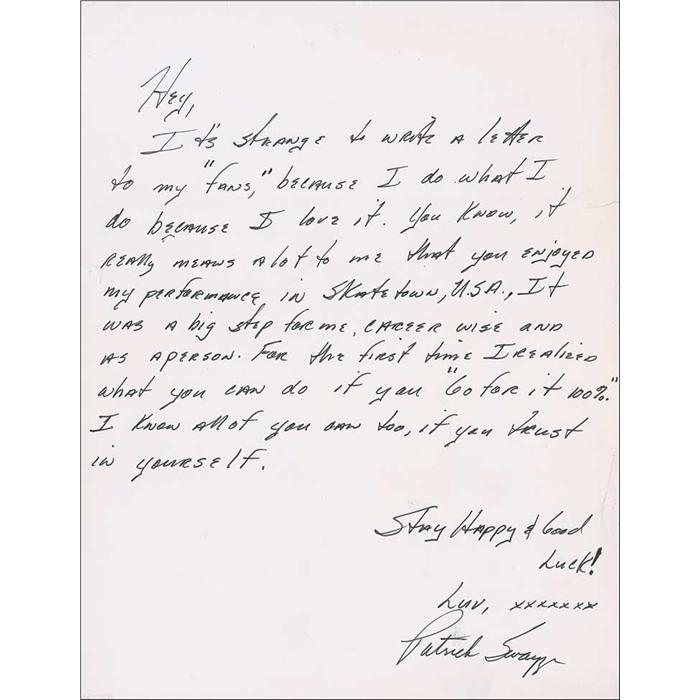 Hey,
It's strange to write a letter
to my "fans," because I do what I
do because I love it. You know, it
really means a lot to me that you enjoyed
my performance in Skatetown, U.S.A., It
was a big step for me, career wise and
as a person. For the first time I realized
what you can do if you "Go for it 100%."
I know all of you can too, if you trust
in yourself.
Stay Happy & Good
Luck!
Luv, xxxxxxx
Patrick Swayze